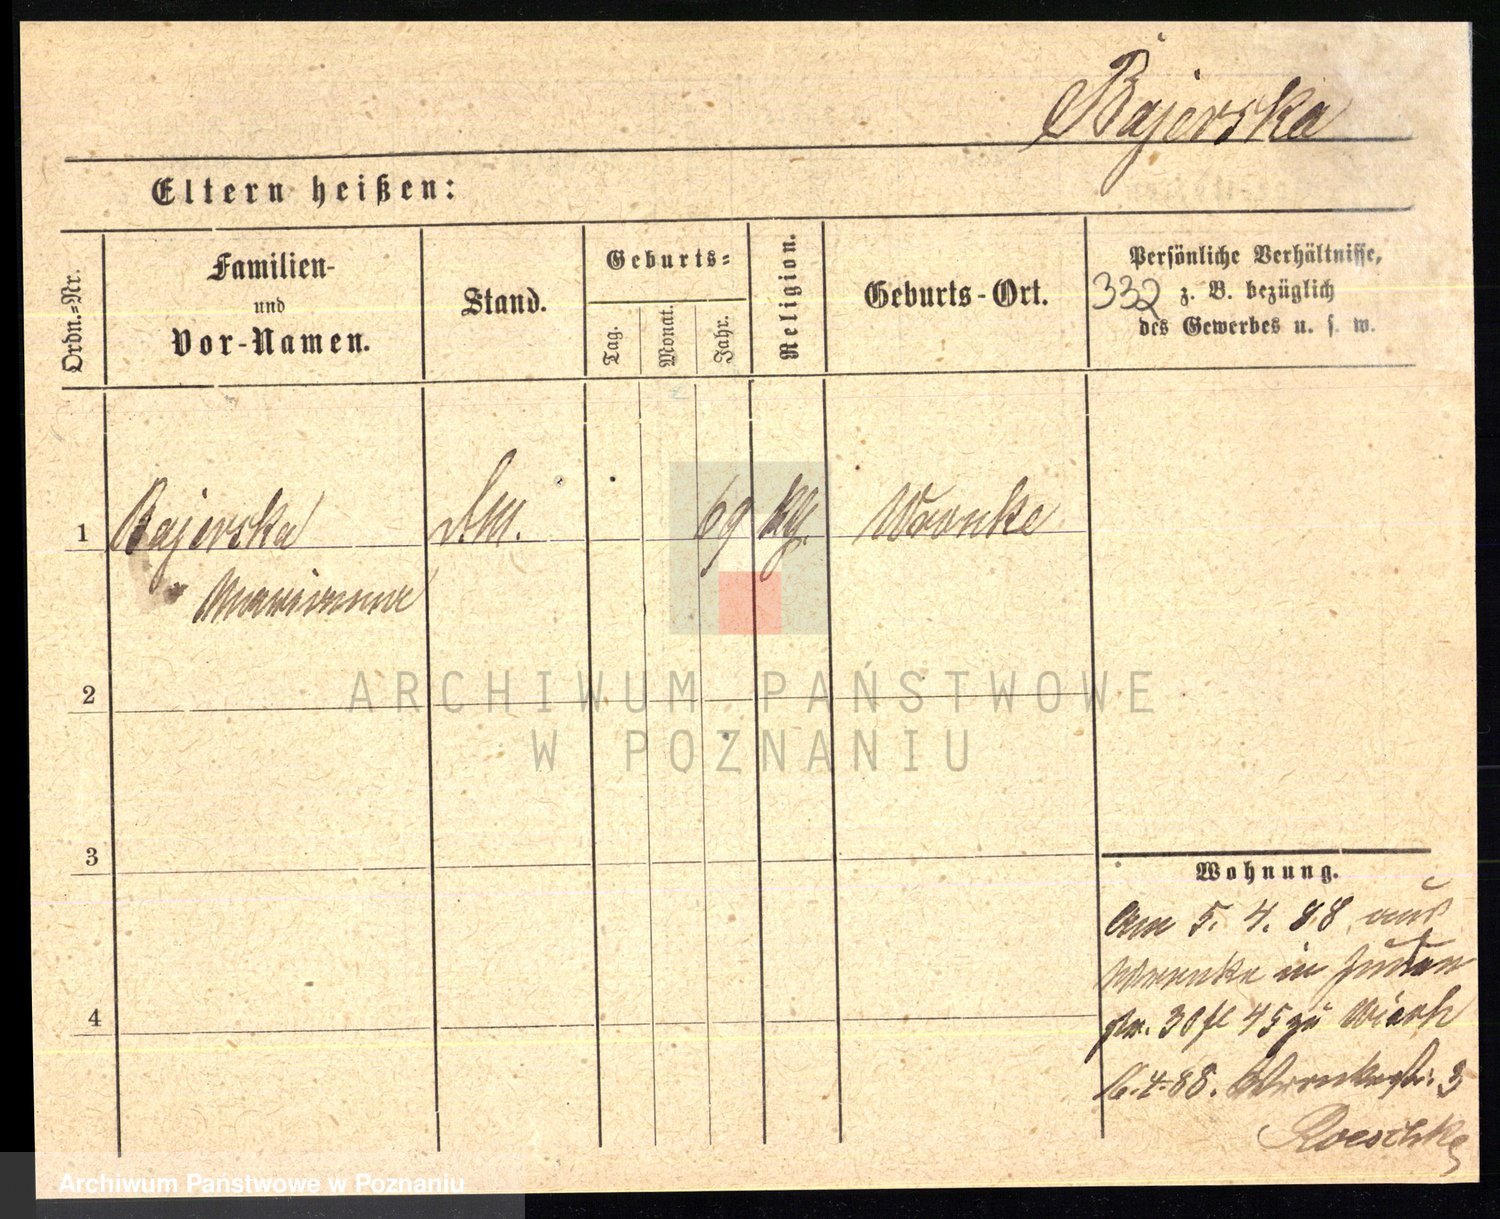 Bajerska
Eltern heißen:
Ordn.-Nr.
Familien-
und
Vor-Namen.
Stand.
Geburts-
Tag.
Monat.
Jahr.
Religion.
Geburts-Ort.
Persönliche Verhältnisse,
332 z. B. bezüglich
des Gewerbes u. s. w.
1 Bajerska 69 Wronke
Marianna
2
3
4
ARCHIWUM PAŃSTWOWE
W POZNANIU
Wohnung.
Am 5. 4. 88 aus
Wronke in Juden
str. 30 45 zu
16.4.88. Wronkerstr. 3
Archiwum Państwowe w Poznaniu